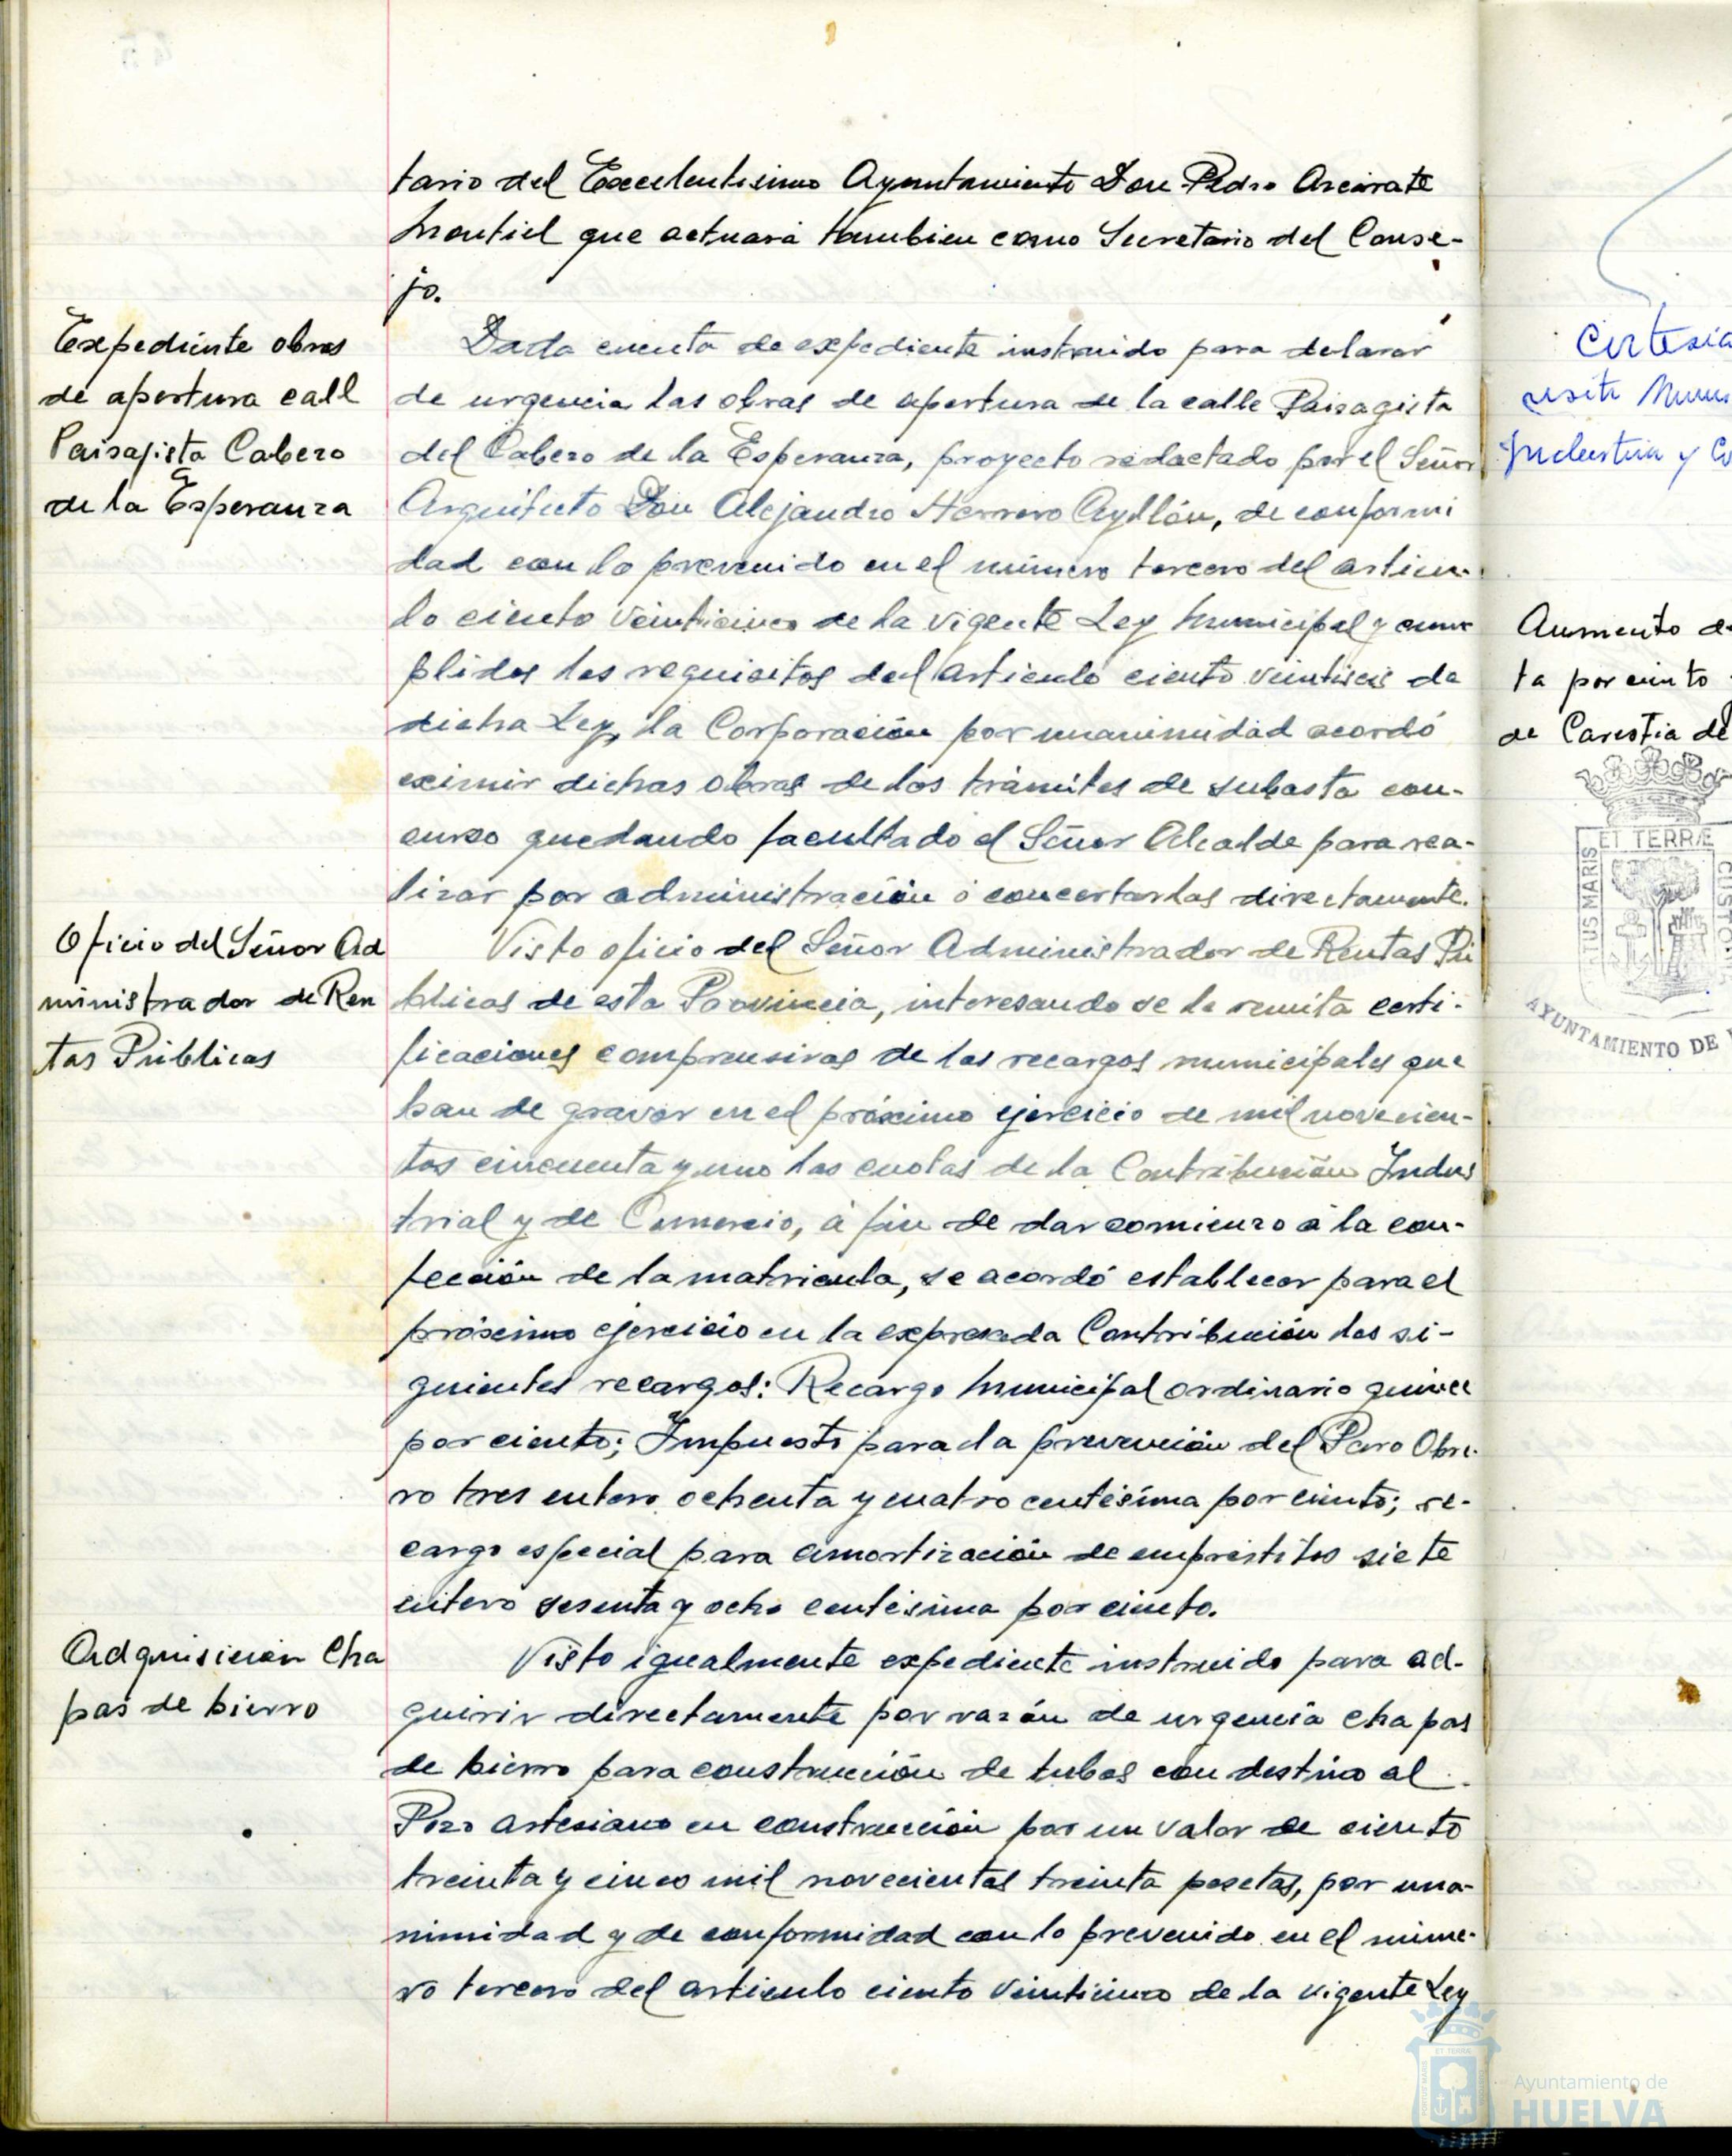 tario del Excelentisimo Ayuntamiento Don Pedro Arcirate
Montiel que actuará tambien como Secretario del Conse-
jo.
Expediente obras
de apertura call
Paisajista Cabezo
de la Esperanza
Dada cuenta de expediente instruido para delarar
de urgencia las obras de apertura de la calle Paisagista
del Cabezo de la Esperanza, proyecto redactado por el Señor
Arquitecto Don Alejandro Herrero Ayllón, de conformi
dad con lo prevenido en el número tercero del articu-
lo ciento veinticinco de la vigente Ley Municipal y cum
plidos los requisitos del articulo ciento veintiseis de
dicha Ley, la Corporación por unanimidad acordó
eximir dichas obras de los trámites de subasta con-
curso quedando facultado el Señor Alcalde para rea-
lizar por administración ó concertarlas directamente.
Oficio del Señor Ad
ministrador de Ren
tas Públicas
Visto oficio del Señor Administrador de Rentas Pú
blicas de esta Provincia, interesando se le remita certi-
ficaciones comprensivas de los recargos municipales que
han de gravar en el próximo ejercicio de mil novecien-
tos cincuenta y uno las cuotas de la Contribución Indus
trial y de Comercio, á fin de dar comienzo á la con-
fección de la matricula, se acordó establecer para el
próximo ejercicio en la expresada Contribución los si-
guientes recargos: Recargo Municipal ordinario quince
por ciento; Impuesto para la prevención del Paro Obre-
ro tres entero ochenta y cuatro centésima por ciento; re-
cargo especial para amortización de empréstitos siete
entero sesenta y ocho centésima por ciento.
Adquisición Cha
pas de hierro
Visto igualmente expediente instruido para ad-
quirir directamente por razón de urgencia chapas
de hierro para construcción de tubos con destino al
Pozo artesiano en construcción por un valor de ciento
treinta y cinco mil novecientas treinta pesetas, por una-
nimidad y de conformidad con lo prevenido en el núme-
ro tercero del articulo ciento veinticinco de la vigente Ley
Industria y Co
Aumento de
ta por ciento
de Carestia de
ET TERRÆ
TUS MARIS
CUSTO
AYUNTAMIENTO DE
Ayuntamiento de
HUELVA